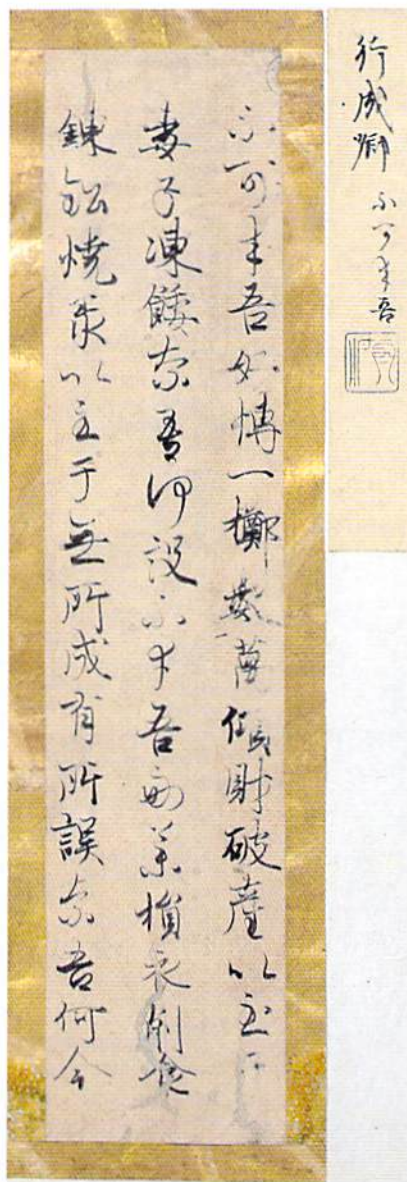 行成卿 不可幸吾
不可幸吾好博一擲數萬傾財破産以至于
妻子凍餒奈吾何設不幸吾好藥損衣削食
錬鉛燒汞以至于無所成有所誤奈吾何今